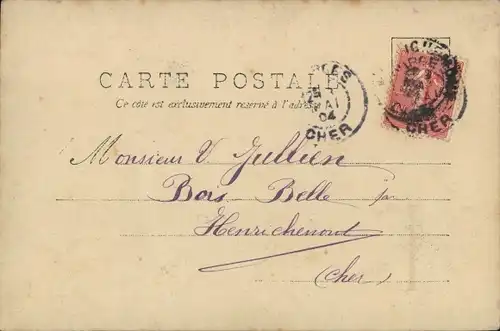 CARTE POSTALE
Ce côté est exclusivement réservé à l'adresse
MAI
04
CHER
CHER
Monsieur V. Jullien
Bois Belle par
Henrichemont
(Cher)